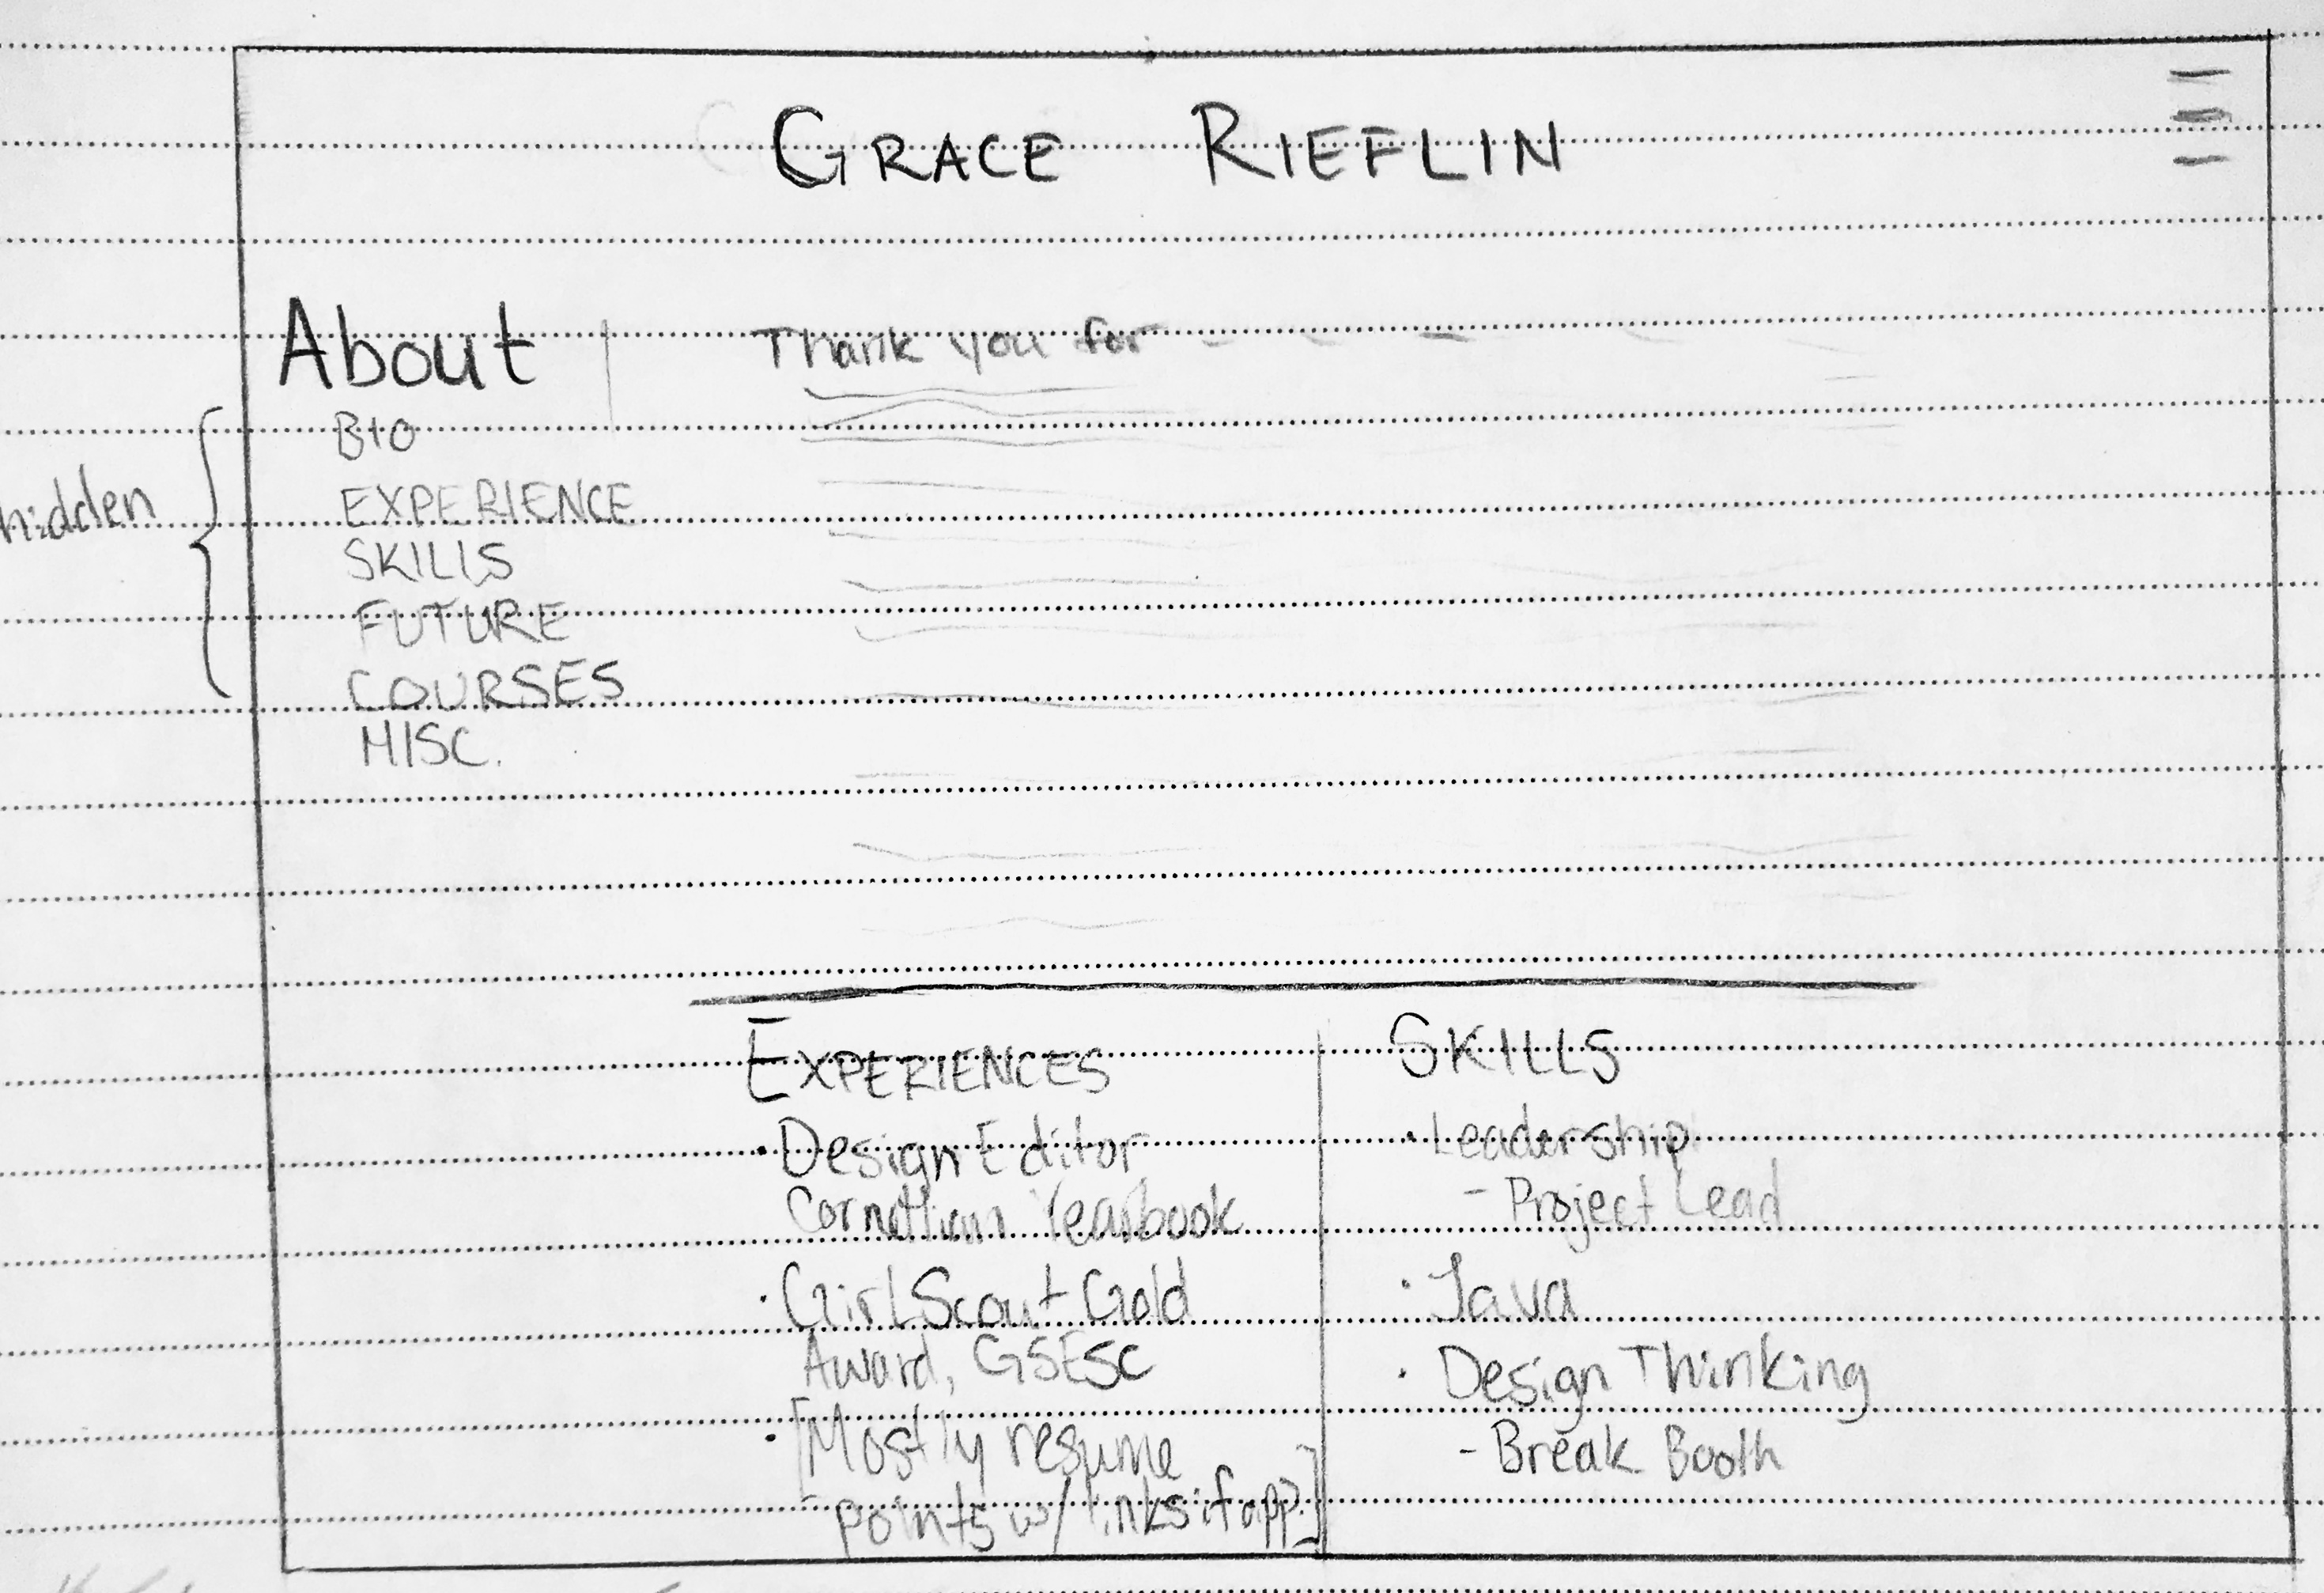 GRACE RIEFLIN
About
Thank you for
hidden
BIO
EXPERIENCE
SKILLS
FUTURE
COURSES
MISC.
EXPERIENCES
· Design Editor
Cornellian Yearbook
· Girl Scout Gold
Award, GSESC
· [Mostly resume
points w/ links if app.]
SKILLS
· Leadership
- Project Lead
· Java
· Design Thinking
- Break Booth